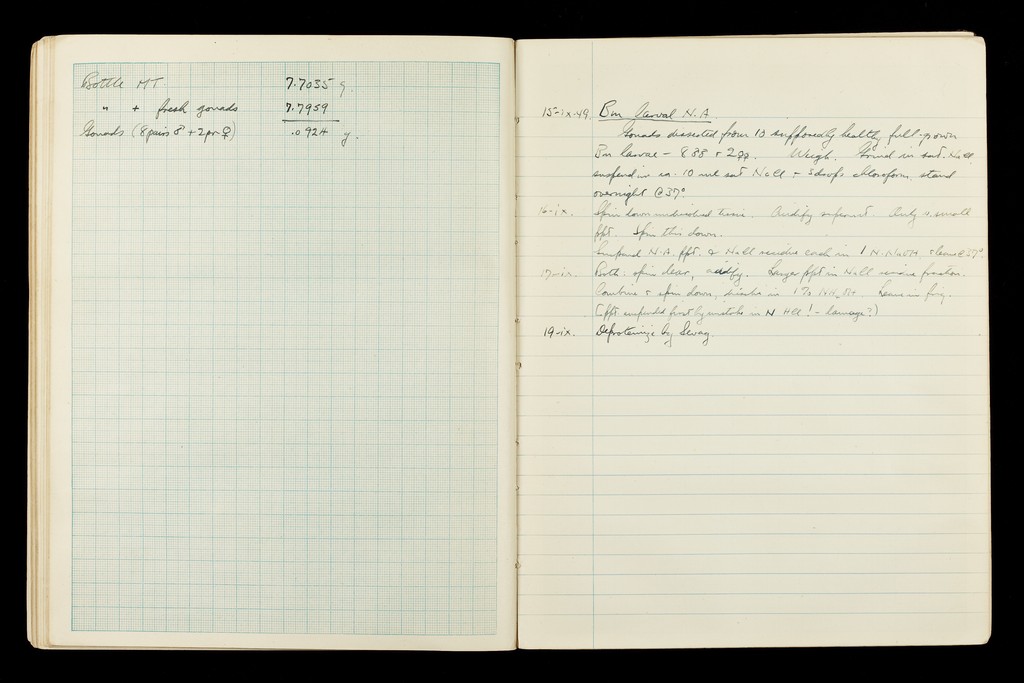 Bottle MT 7.7035 g.
" + fresh gonads 7.7959
Gonads (8 pairs ♂ + 2 pr ♀) .0924 g.
15-ix-49. Bm larval N.A.
Gonads dissected from 10 supposedly healthy full-grown
Bm larvae – 8 ♂♂ + 2 ♀♀. Weigh. Grind in sat. NaCl,
suspend in ca. 10 ml sat NaCl + 3 drops chloroform, stand
overnight @ 37°
16-ix. Spin down undissolved tissue. Acidify supernat. Only v. small
ppt. Spin this down.
Suspend N.A. ppt. & NaCl residue each in 1 N NaOH + leave @ 37°
17-ix. Both spin clear, acidify. Larger ppt in NaCl residue fraction.
Combine + spin down, dissolve in 1% NH4 Leave in frig.
(ppt suspended first by mistake in N HCl! – damage?)
19-ix. Deproteinize by Sevag.